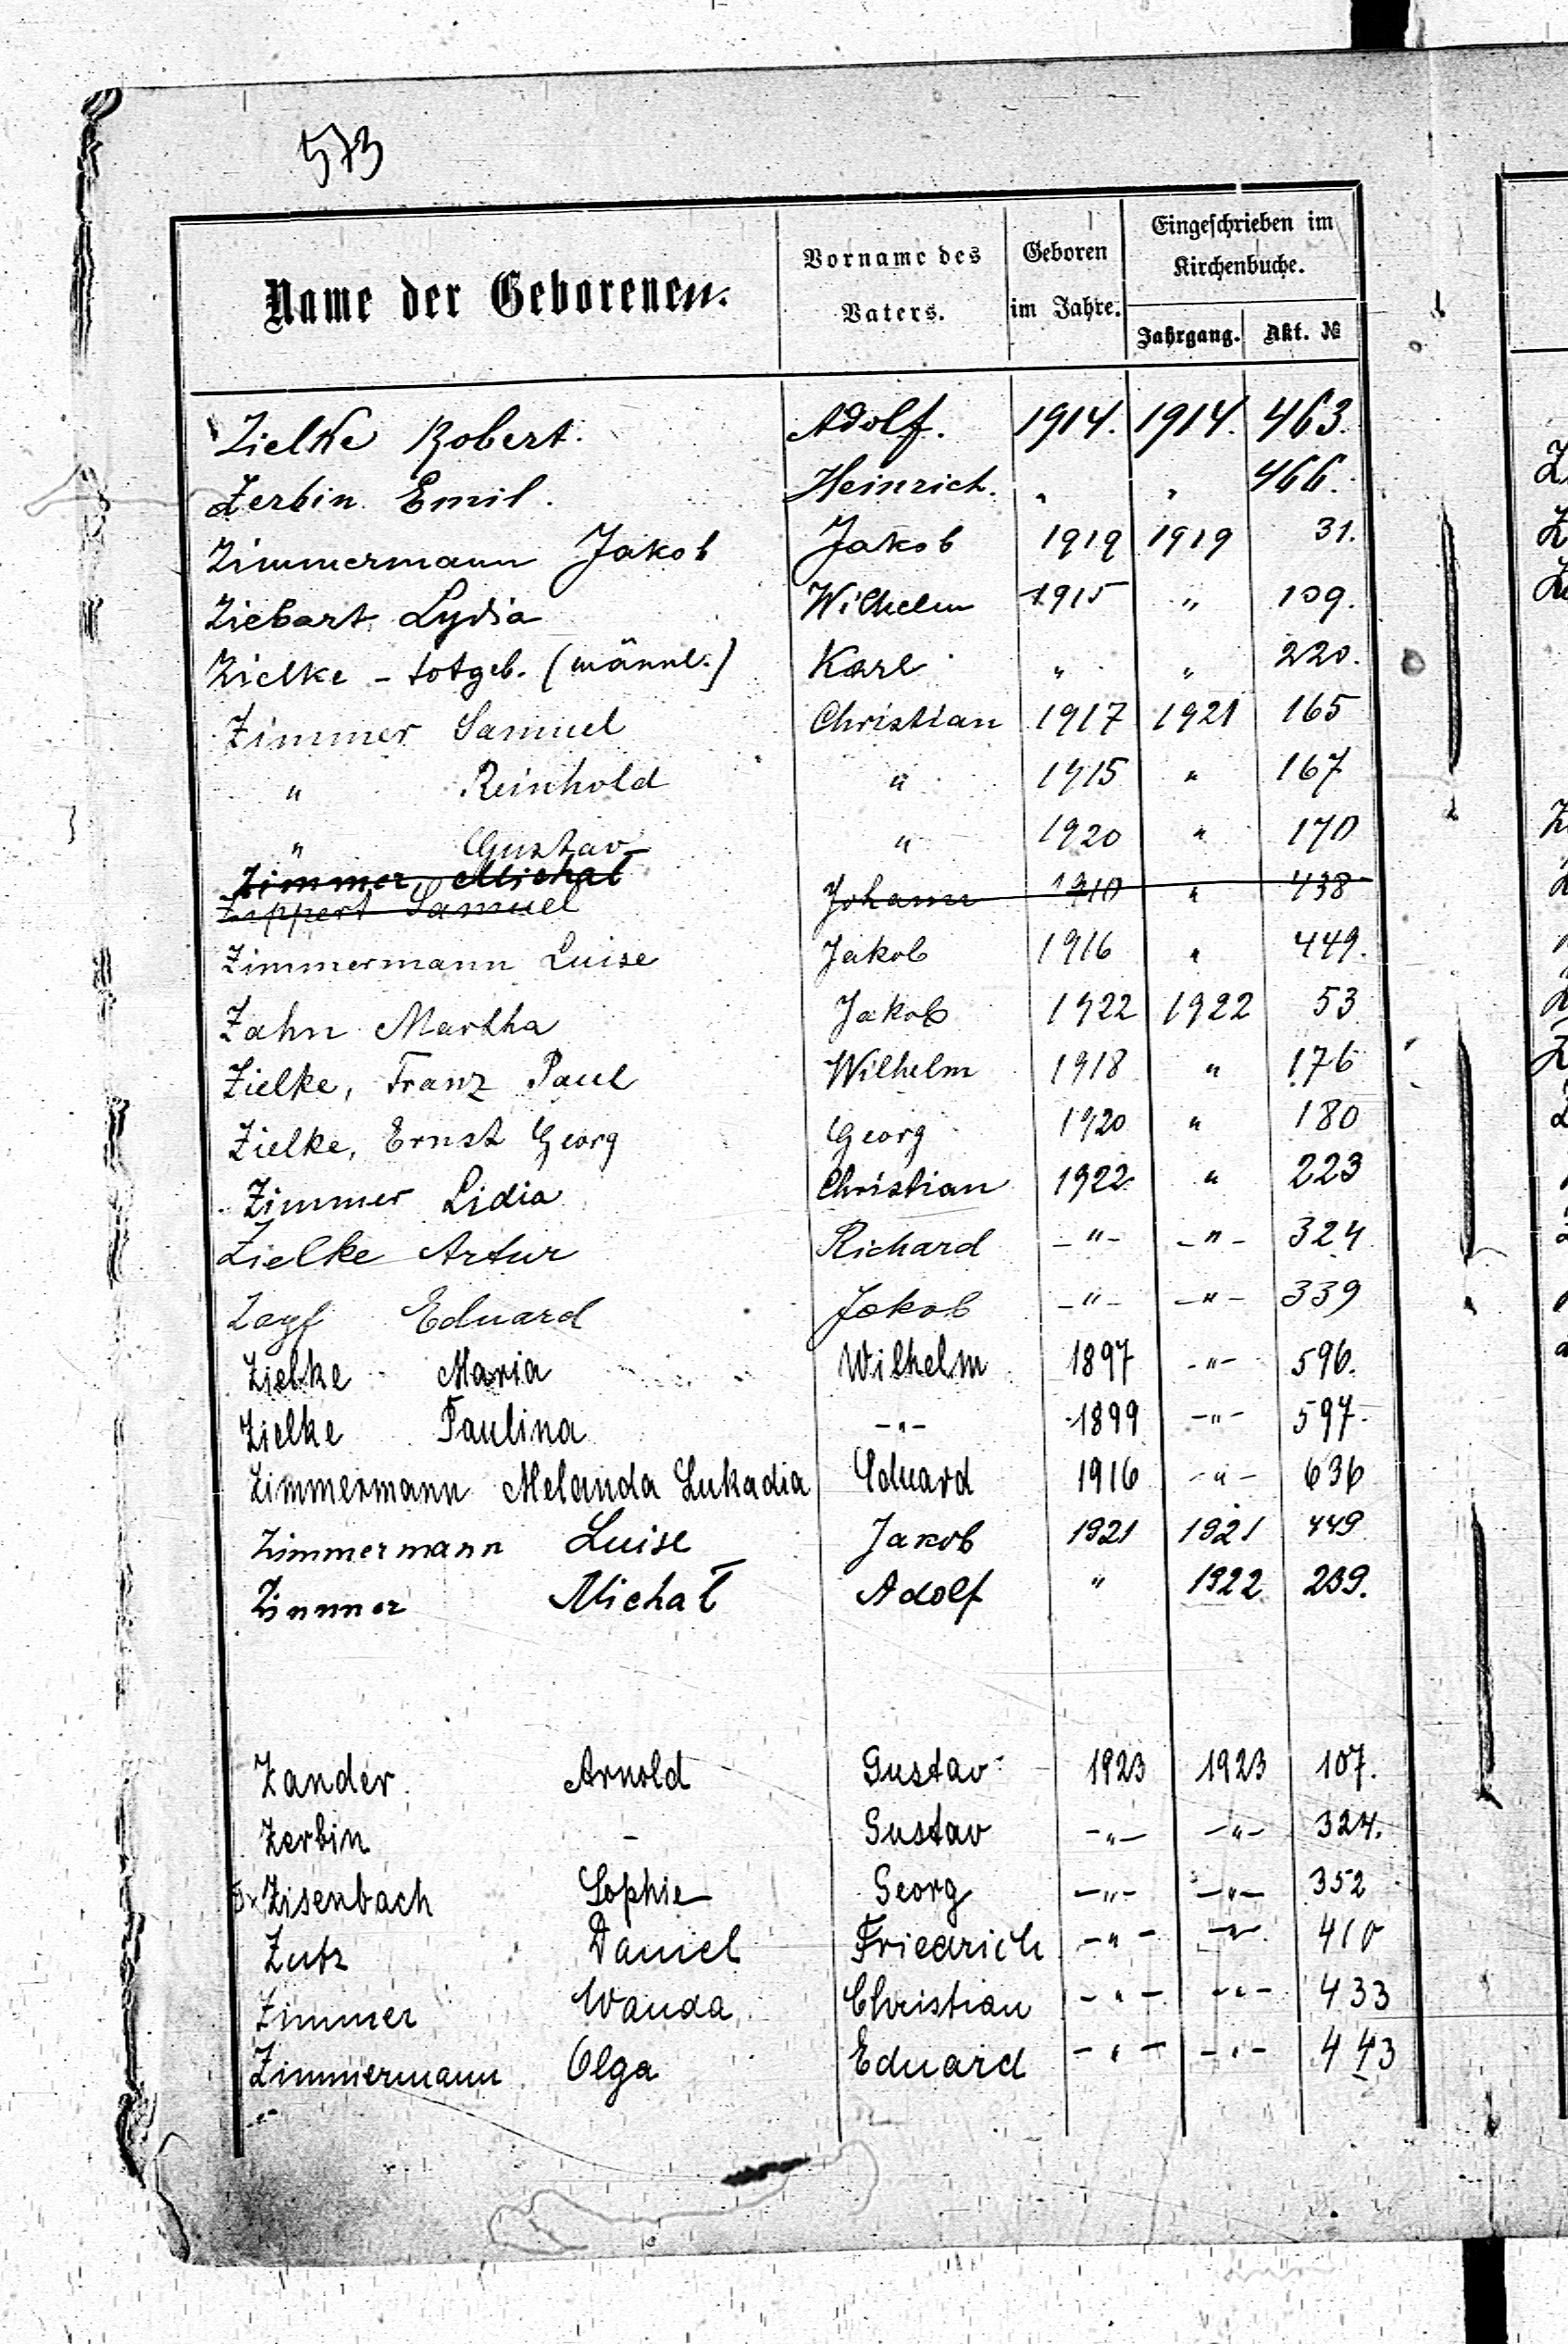 573
Name der Geborenen. Vorname des Vaters. Geboren im Jahre. Eingeschrieben im Kirchenbuche. Jahrgang. Akt. №
Zielke Robert. Adolf. 1914. 1914. 463.
Zerbin Emil. Heinrich. " " 466.
Zimmermann Jakob Jakob 1919 1919 31.
Ziebart Lydia Wilhelm 1915 " 109.
Zielke - totgeb. (männl.) Karl " " 220.
Zimmer Samuel Christian 1917 1921 165
" Reinhold " 1915 " 167
" Gustav " 1920 " 170
Zimmer, Michał
Zippert Samuel Johann 1910 " 438
Zimmermann Luise Jakob 1916 " 449.
Zahn Martha Jakob 1922 1922 53
Zielke, Franz Paul Wilhelm 1918 " 176
Zielke, Ernst Georg Georg 1920 " 180
Zimmer Lidia Christian 1922 " 223
Zielke Artur Richard -"- -"- 324
Eduard Jakob -"- -"- 339
Zielke Maria Wilhelm 1897 -"- 596.
Zielke Paulina -"- 1899 -"- 597.
Zimmermann Melanda Lukadia Eduard 1916 -"- 636
Zimmermann Luise Jakob 1921 1921 449
Zimmer Michał Adolf " 1922 239.
Zander Arnold Gustav 1923 1923 107.
Zerbin - Gustav -"- -"- 324.
Zisenbach Sophie Georg -"- -"- 352
Zutz Daniel Friedrich -"- -"- 410
Zimmer Wanda Christian -"- -"- 433
Zimmermann Olga Eduard -"- -"- 443